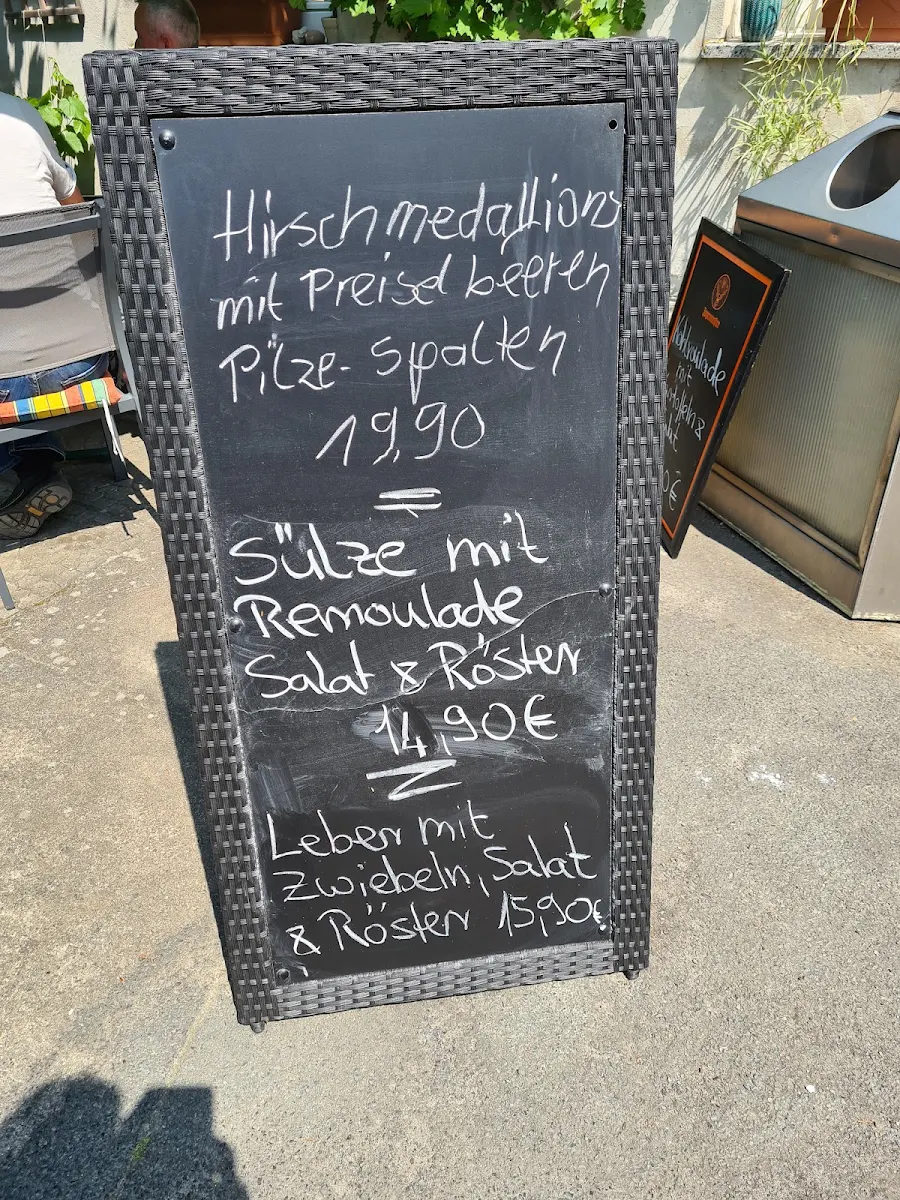 Hirschmedallions
mit Preiselbeeren
Pilze- Spalten
19,90
Sülze mit
Remoulade
Salat & Röster
14,90€
Leber mit
Zwiebeln, Salat
& Röster 15,90€
mit
&
€